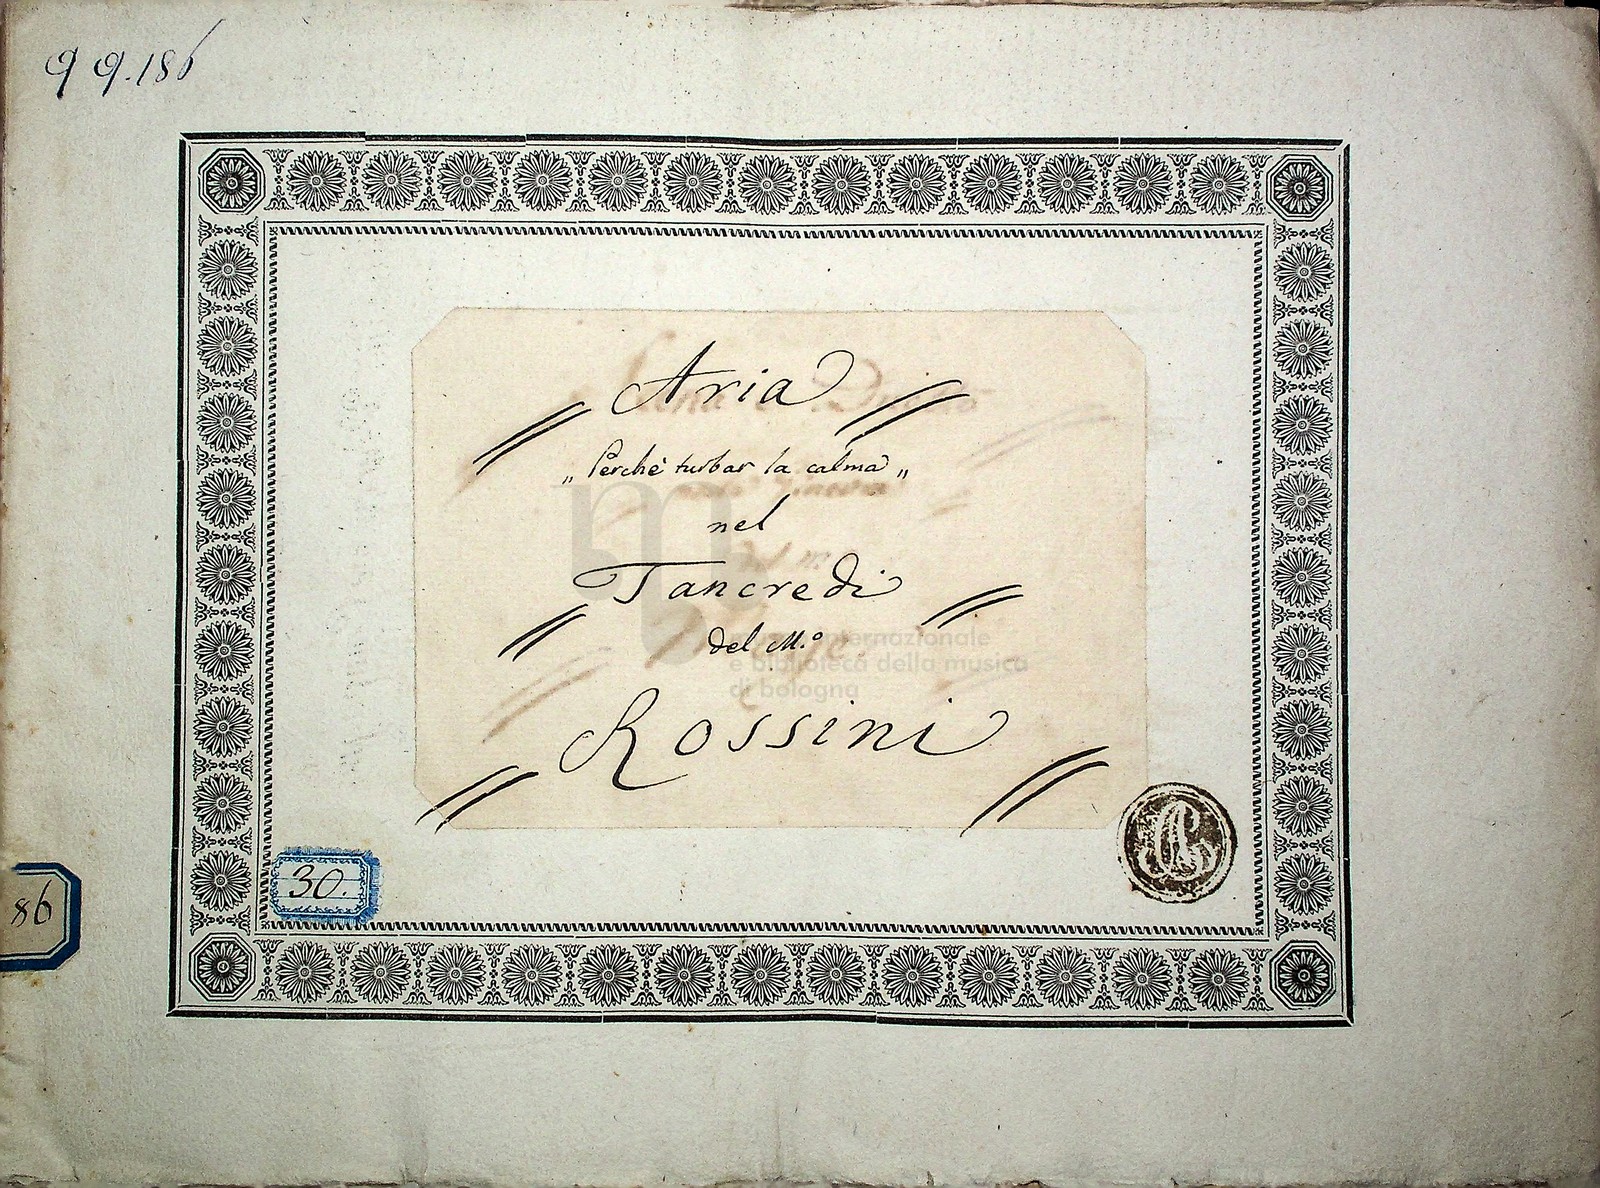 QQ.186
Aria
„Perchè turbar la calma„
nel
Tancredi
del M.º
Rossini
museo internazionale
e biblioteca della musica
di bologna
30.
86